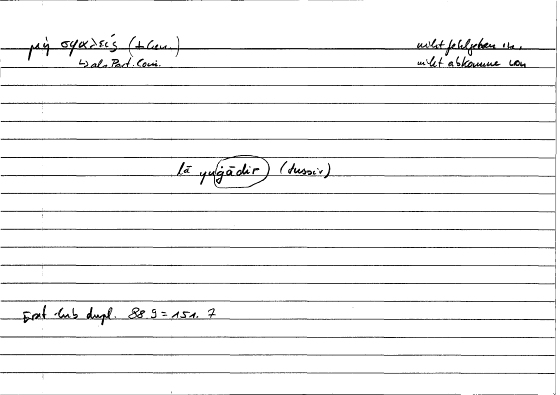 μὴ σφαλείς (+ Gen.) nicht fehlgehen in,
↳ als Part. Coni. nicht abkommen von
lā yuġādir (Jussiv)
Erat. cub. dupl. 88 9 = 151. 7